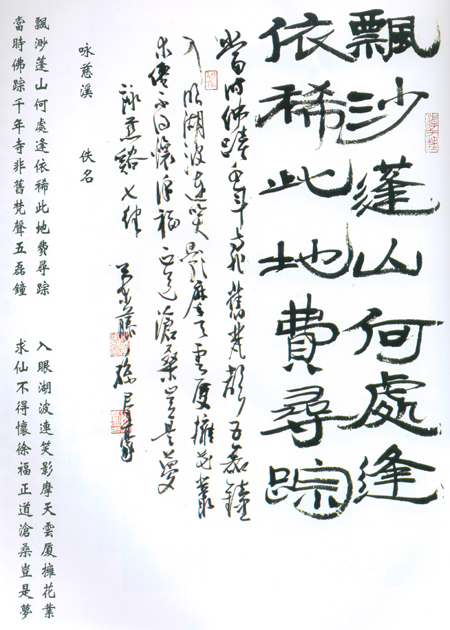 飄沙蓬山何處逢
依稀此地費尋踪
當時佛蹟千年非舊梵聲五磊鐘
入眼湖波連笑影摩天雲厦擁花叢
求僊不得懷徐福正道滄桑豈是夢
詠慈谿七律
咏慈溪 佚名
飄渺蓬山何處逢依稀此地費尋踪
當時佛踪千年寺非舊梵聲五磊鐘
入眼湖波連笑影摩天雲厦擁花業
求仙不得懷徐福正道滄桑豈是夢